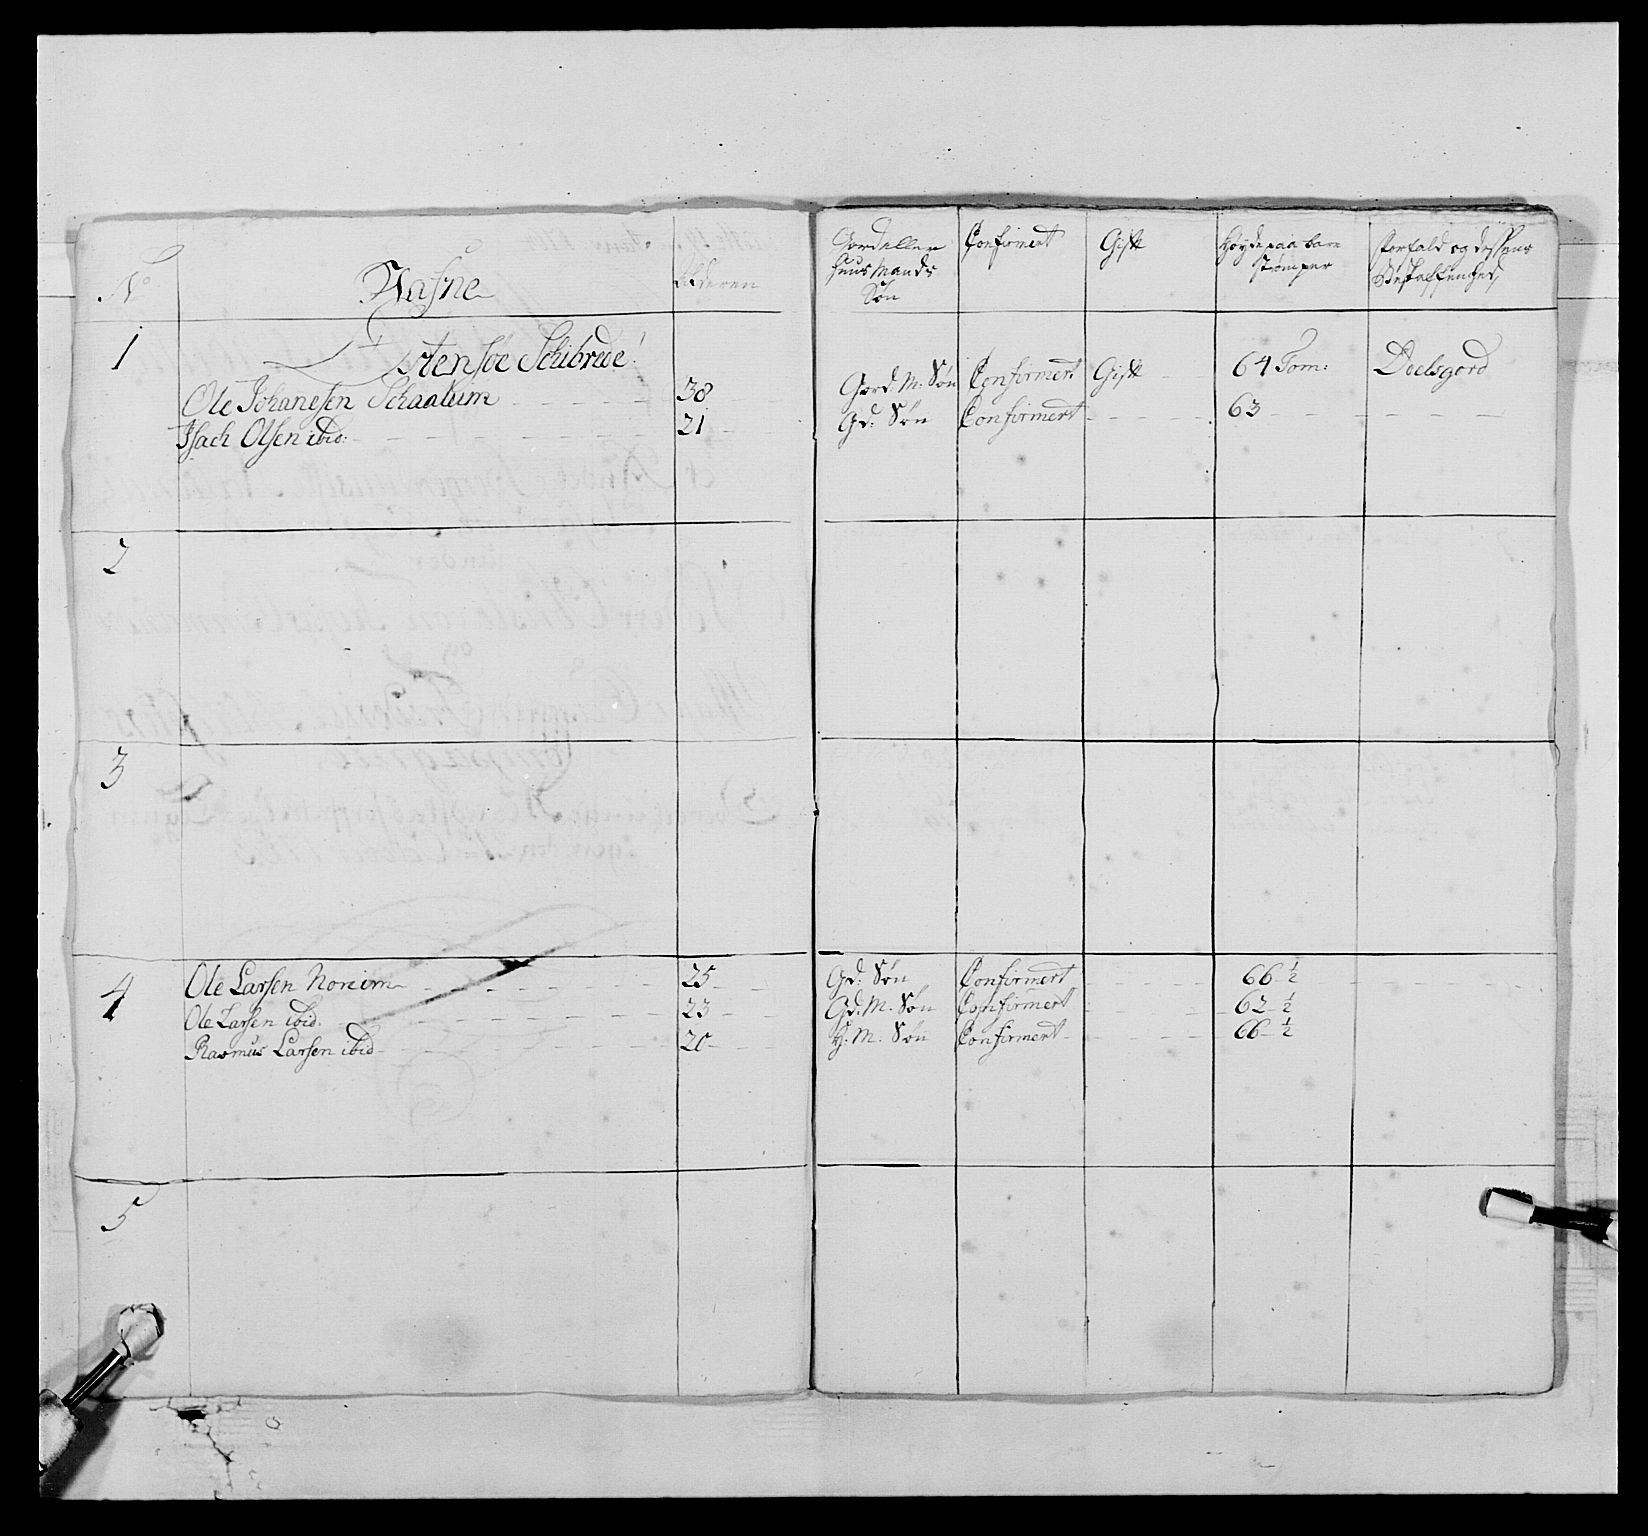 No
Nafne
Alderen
Gord eller
Huus Mands
Søn
Confirmert
Gift
Høyde paa bare
Strømper
Forfald og dessens
Beskaffenhed
1
Stensøe Schibrede
Ole Johanesen Schaalum 38 Gord. M. Søn Confirmert Gift 64 Tom: Doelsgord
Isach Olsen ibid: 21 Gd: Søn Confirmert 63
2
3
4
Ole Larsen Noreim 25 Gd: Søn Confirmert 66 ½
Ole Larsen ibid. 23 Gd. M. Søn Confirmert 62 ½
Rasmus Larsen ibid 20 H. M. Søn Confirmert 66 ½
5